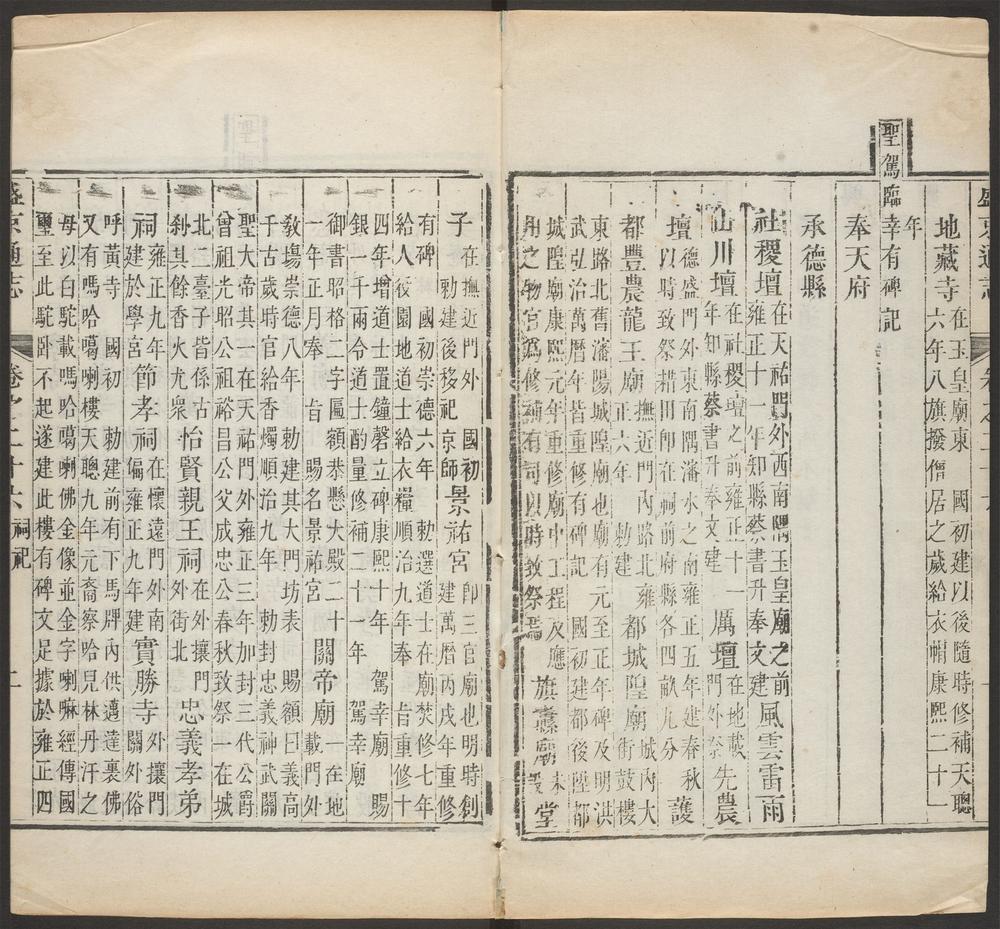 盛京通志 卷之二十六 一
地藏寺在玉皇廟東 國初建以後隨時修補天聰
六年八旗撥僧居之歲給衣帽康熙二十一
年
聖駕臨幸有碑記
奉天府
承德縣
社稷壇在天祐門外西南隅玉皇廟之前
雍正十一年知縣蔡書升奉文建風雲雷雨
山川壇在社稷壇之前雍正十一
年知縣蔡書升奉文建厲壇在地載
門外奈先農
壇德盛門外東南隅瀋水之南雍正五年建春秋
以時致祭耤田即在祠前府縣各四畝九分護
都豐農龍王廟撫近門內路北雍
正六年 勅建都城隍廟城內大
街鼓樓
東路北舊瀋陽城隍廟也廟有元至正年碑及明洪
武弘治萬曆年皆重修有碑記 國初建都後陞都
城隍廟康熙元年重修廟中工程及應
用之物官為修補有司以時致祭焉旗纛廟未
設堂
子在撫近門外 國初
勅建後移祀 京師景祐宮即三官廟也明時創
建萬曆丙戌年重修
有碑 國初崇德六年 勅選道士在廟焚修七年
給人役園地道士給衣糧順治九年奉 旨重修十
四年增道士置鐘磬立碑康熙十年 駕幸廟 賜
銀一千兩令道士酌量修補二十一年 駕幸廟
御書昭格二字匾額恭懸大殿二十
一年正月奉 旨 賜名景祐宮關帝廟一在地
載門外
教場崇德八年 勅建其大門坊表 賜額曰義高
千古歲時官給香燭順治九年 勅封忠義神武關
聖大帝其一在天祐門外雍正三年加封三代公爵
曾祖光昭公祖裕昌公父成忠公春秋致祭一在城
北二臺子皆係古
剎其餘香火尤衆怡賢親王祠在外攘門
外街北忠義孝弟
祠雍正九年
建於學宮節孝祠在懷遠門外南
偏雍正九年建實勝寺外攘門
關外俗
呼黃寺 國初 勅建前有下馬牌內供邁達裏佛
又有嗎哈噶喇樓天聰九年元裔察哈兒林丹汗之
母以白駝載嗎哈噶喇佛金像並金字喇嘛經傳國
璽至此駝卧不起遂建此樓有碑文足據於雍正四
盛京通志 卷之二十六 祠祀 二